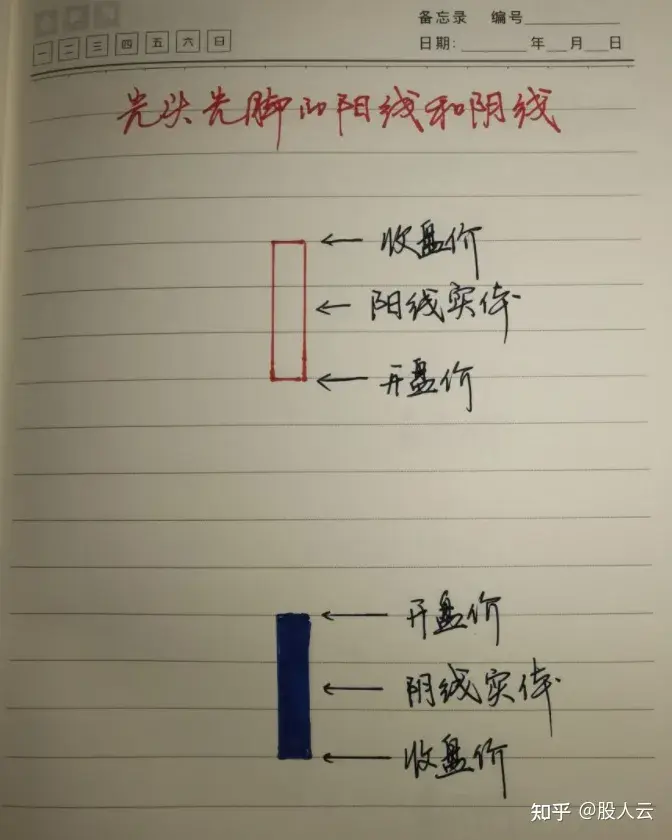 备忘录 编号
一 二 三 四 五 六 日
日期: 年 月 日
光头光脚的阳线和阴线
收盘价
阳线实体
开盘价
开盘价
阴线实体
收盘价
知乎 @股人云